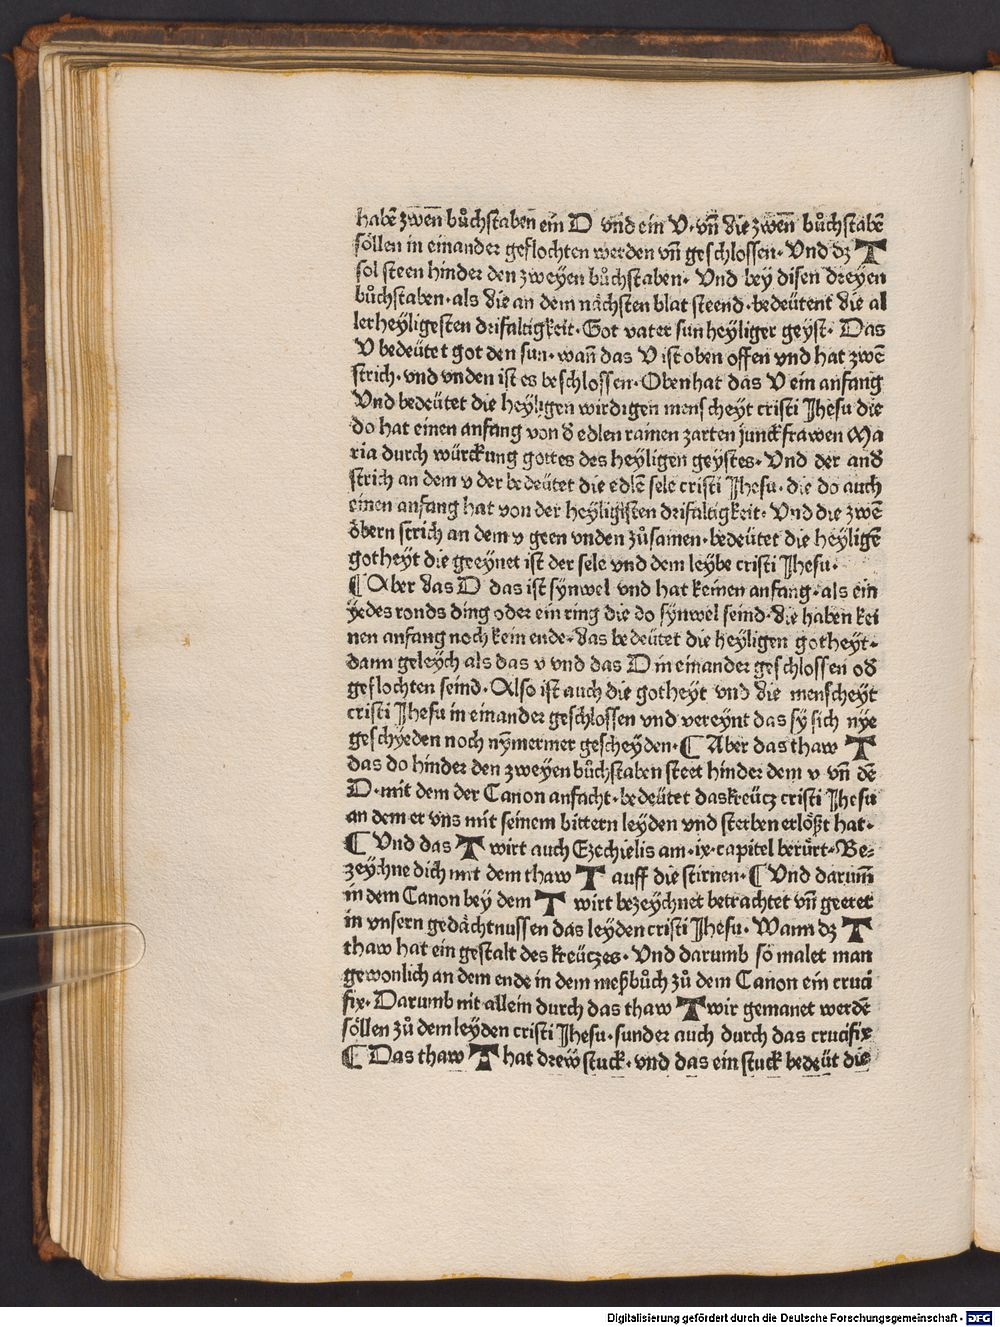 habē zwen̄ bůchstaben ein D vnd ein V· vn̄ die zwen̄ bůchstabē
söllen in einander geflochten werden vn̄ geschlossen· Vnd dz T
sol steen hinder den zweyen bůchstaben· Vnd bey disen dreyen
bůchstaben· als die an dem nächsten blat steend· bedeütent die al
lerheyligesten drifaltigkeit· Got vater sun heyliger geyst· Das
V bedeütet got den sun· wan̄ das V ist oben offen vnd hat zwē
strich· vnd vnden ist es beschlossen· Oben hat das V ein anfang
Vnd bedeütet die heyligen wirdigen menscheyt cristi Jhesu die
do hat einen anfang von d̄ edlen rainen zarten junckfrawen Ma
ria durch würckung gottes des heyligen geystes· Vnd der and̄
strich an dem v der bedeütet die edlē sele cristi Jhesu· die do auch
einen anfang hat von der heyligisten drifaltigkeit· Vnd die zwē
öbern strich an dem v geen vnden zůsamen· bedeütet die heyligē
gotheyt die geeynet ist der sele vnd dem leybe cristi Jhesu·
¶ Aber das D das ist synwel vnd hat keinen anfang· als ein
yedes ronds ding oder ein ring die do synwel seind· die haben kei
nen anfang noch kein ende· das bedeütet die heyligen gotheyt·
dann geleych als das v vnd das D in einander geschlossen od̄
geflochten seind· Also ist auch die gotheyt vnd die menscheyt
cristi Jhesu in einander geschlossen vnd vereynt das sy sich nye
geschyeden noch nȳmermer gescheyden· ¶ Aber das thaw T
das do hinder den zweyen bůchstaben steet hinder dem v vn̄ dē
D· mit dem der Canon anfacht· bedeütet das kreücz cristi Jhesu
an dem er vns mit seinem bittern leyden vnd sterben erlößt hat·
¶ Vnd das T wirt auch Ezechielis am· ix· capitel berürt· Be⸗
zeychne dich mit dem thaw T auff die stirnen· ¶ Vnd darum̄
in dem Canon bey dem T wirt bezeychnet betrachtet vn̄ geeret
in vnsern gedächtnussen das leyden cristi Jhesu· Wann dz T
thaw hat ein gestalt des kreüczes· Vnd darumb so malet man
gewonlich an dem ende in dem meßbůch zů dem Canon ein cruci
fix· Darumb nit allein durch das thaw T wir gemanet werdē
söllen zů dem leyden cristi Jhesu· sunder auch durch das crucifix
¶ Das thaw T hat drew stuck· vnd das ein stuck bedeüt die
Digitalisierung gefördert durch die Deutsche Forschungsgemeinschaft - DFG